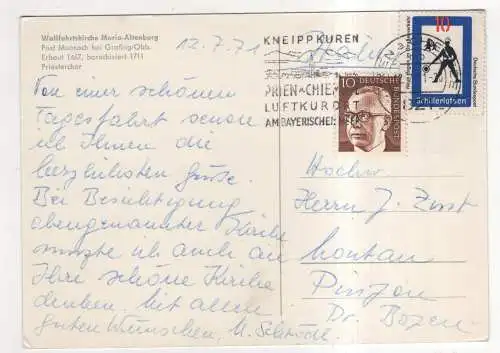 Wallfahrtskirche Maria-Altenburg
Post Moosach bei Grafing/Obb.
Erbaut 1467, barockisiert 1711
Priesterchor
12.7.71
KNEIPPKUREN
PRIEN A CHIEM
LUFTKURORT
AM BAYERISCHEN
10
DEUTSCHE
BUNDESPOST
10
Deutsche Bundespost
Schülerlotsen
Von einer schönen
Tagesfahrt sende
ich Ihnen die
herzlichsten Grüße.
Bei Besichtigung
obengenannter Kirche
mußte ich auch an
Ihre schöne Kirche
denken. Mit allen
guten Wünschen, M.
Hochw.
Herrn J. Zust
Montan
Pinzon
Dr. Bozen